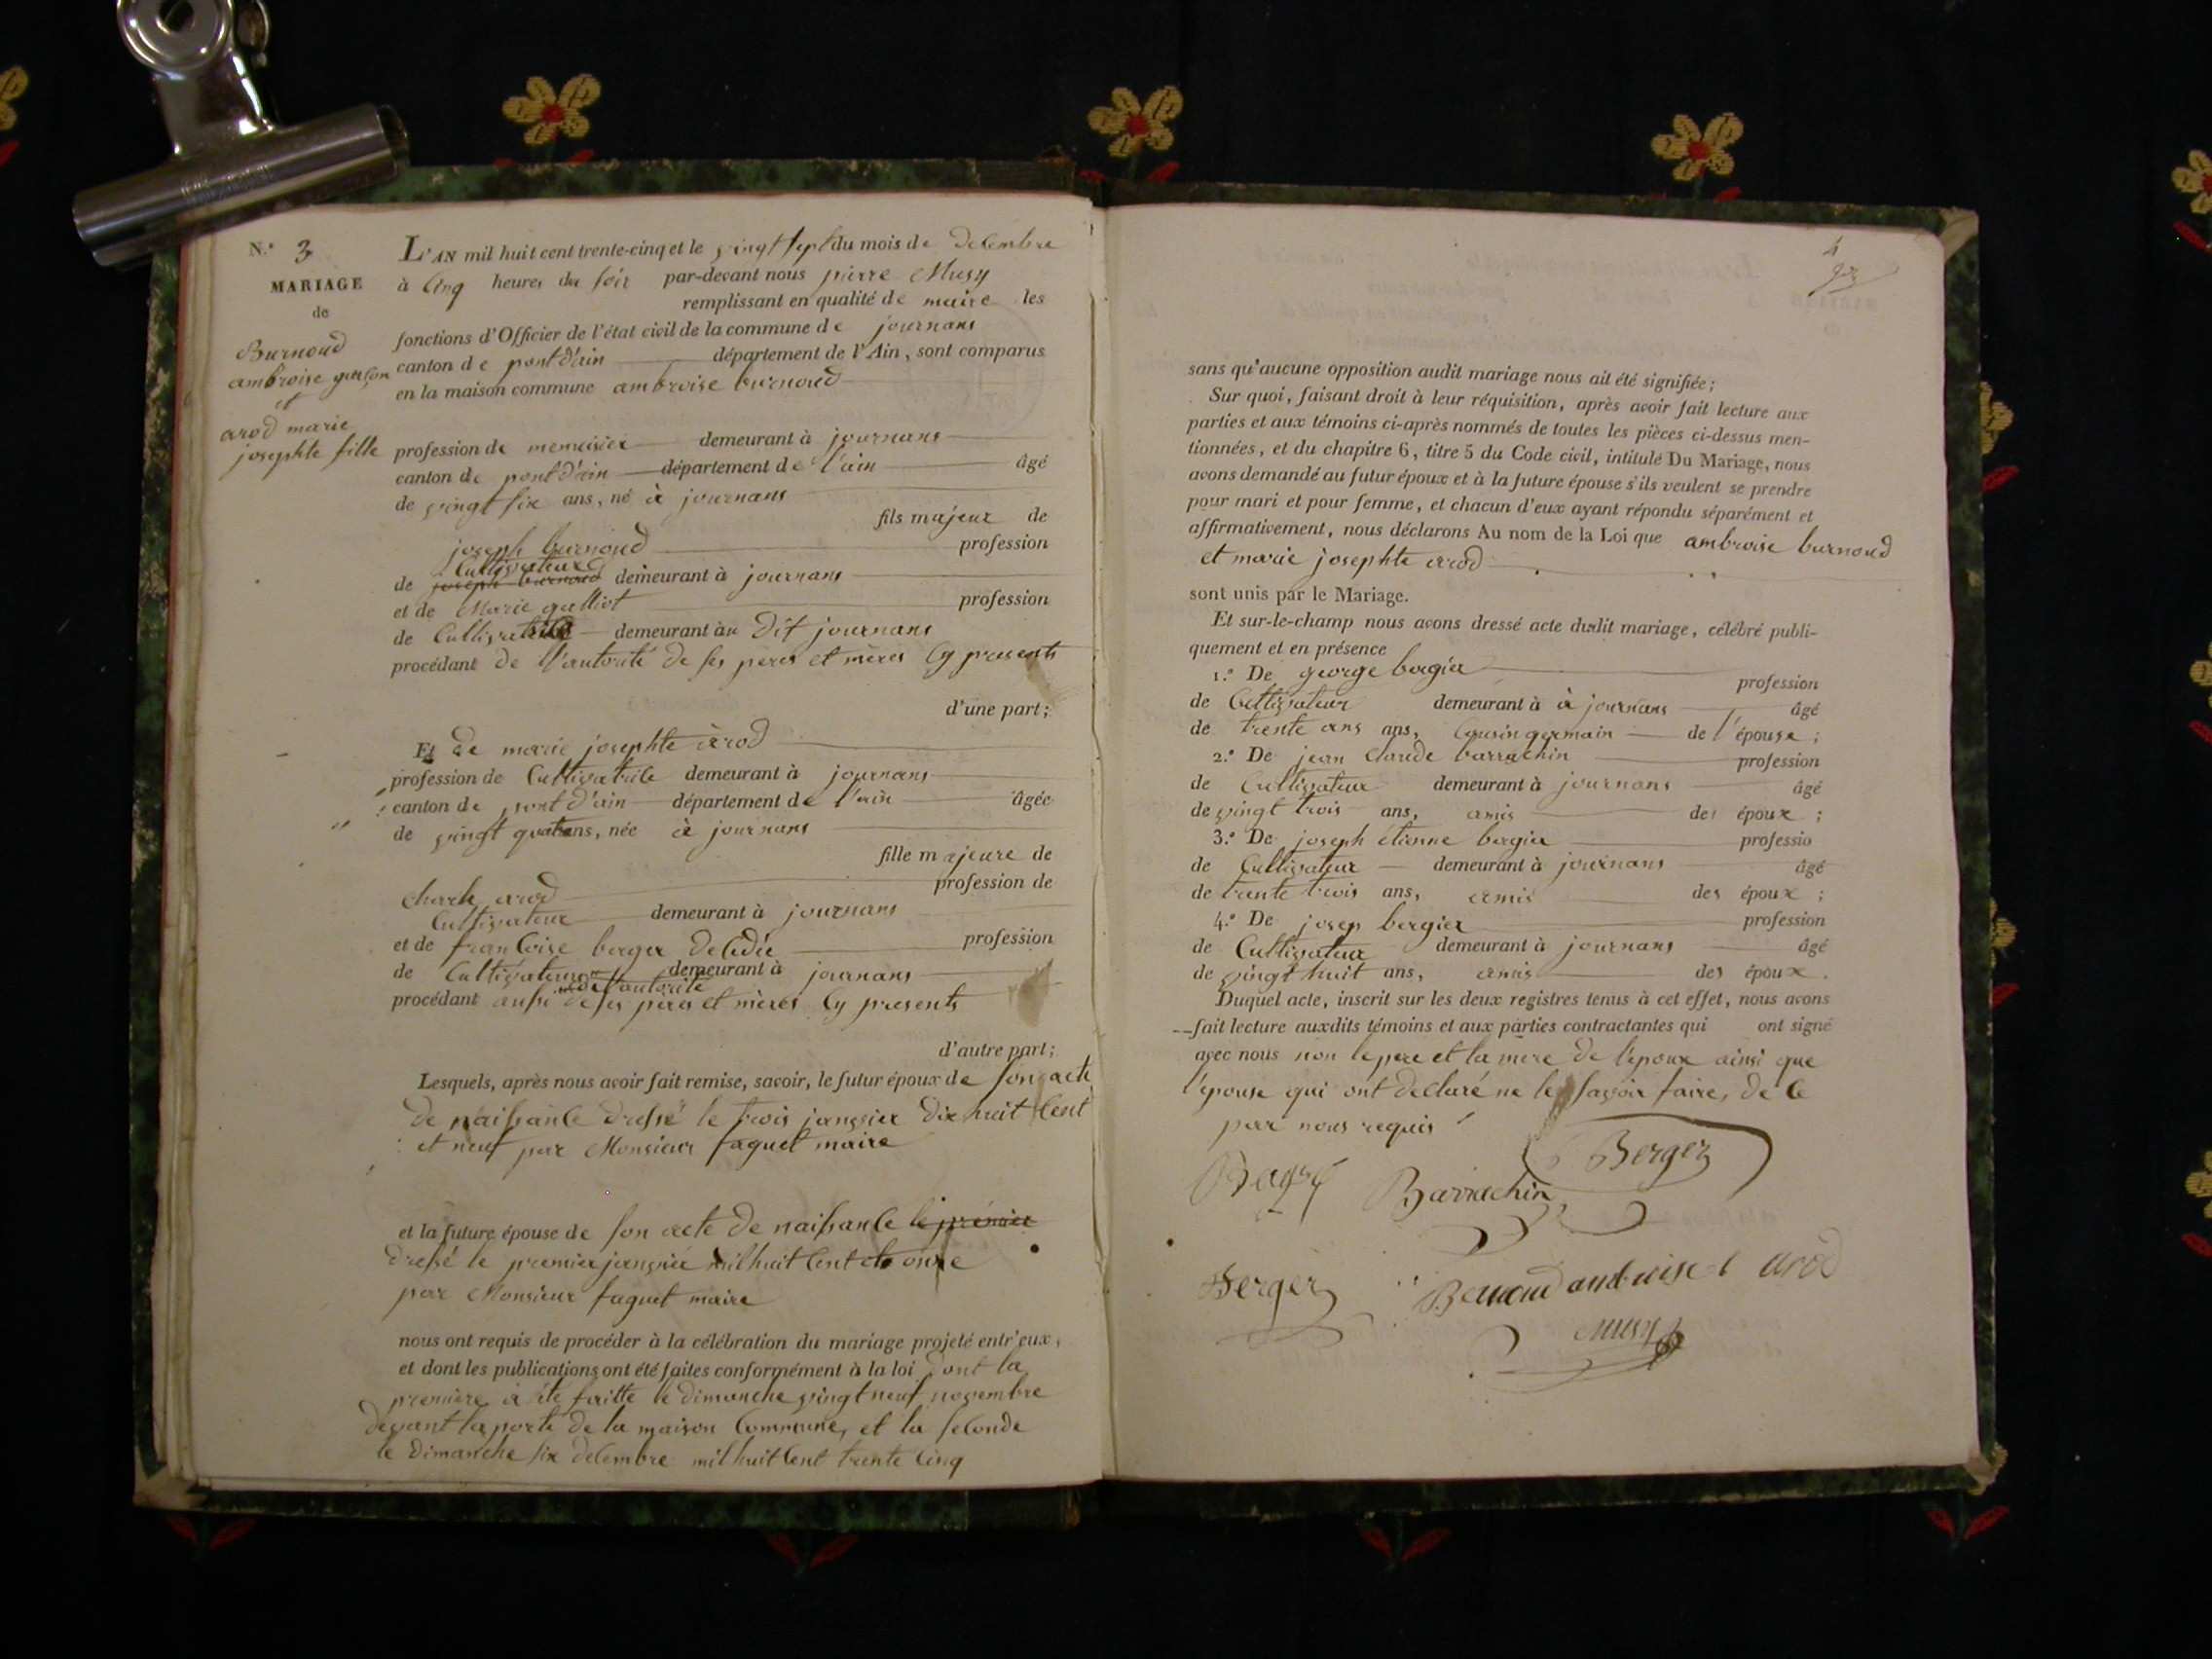 N.º 3
MARIAGE
de
Burnoud
ambroise garçon
et
arod marie
josephte fille
L'AN mil huit cent trente-cinq et le vingt sept du mois de decembre
à cinq heures du soir par-devant nous pierre Musy
remplissant en qualité de maire les
fonctions d'Officier de l'état civil de la commune de journans
canton de pont d'ain département de l'Ain, sont comparus
en la maison commune ambroise burnoud
profession de menuisier demeurant à journans
canton de pont d'ain département de l'ain âgé
de vingt six ans, né à journans
fils majeur de
joseph burnoud profession
Cultivateur
de joseph burnoud demeurant à journans
et de Marie galliot profession
de Cultivatrice demeurant au dit journans
procédant de l'autorité de ses peres et mères cy presents
d'une part;
Et de marie josephte arod
profession de Cultivatrice demeurant à journans
canton de pont d'ain département de l'ain âgée
de vingt quatre ans, née à journans
fille majeure de
charle arod profession de
Cultivateur demeurant à journans
et de françoise berger profession
de Cultivateur demeurant à journans
de l'autorité
procédant aussi de ses peres et mères cy presents
d'autre part;
Lesquels, après nous avoir fait remise, savoir, le futur époux de son acte
de naissance dressé le trois janvier dix huit cent
et neuf par Monsieur faguet maire
et la future épouse de son acte de naissance le premier
dressé le premier janvié mil huit cent onze
par Monsieur faguet maire
nous ont requis de procéder à la célébration du mariage projeté entr'eux,
et dont les publications ont été faites conformément à la loi dont la
premiere a été faitte le dimanche vingt neuf novembre
devant la porte de la maison Commune, et la seconde
le dimanche six decembre mil huit cent trente cinq
4
sans qu'aucune opposition audit mariage nous ait été signifiée;
Sur quoi, faisant droit à leur réquisition, après avoir fait lecture aux
parties et aux témoins ci-après nommés de toutes les pièces ci-dessus men-
tionnées, et du chapitre 6, titre 5 du Code civil, intitulé Du Mariage, nous
avons demandé au futur époux et à la future épouse s'ils veulent se prendre
pour mari et pour femme, et chacun d'eux ayant répondu séparément et
affirmativement, nous déclarons Au nom de la Loi que ambroise burnoud
et marie josephte arod
sont unis par le Mariage.
Et sur-le-champ nous avons dressé acte dudit mariage, célébré publi-
quement et en présence
1.º De george bergier profession
de Cultivateur demeurant à à journans âgé
de trente ans ans, Cousin germain de l'épouse;
2.º De jean claude barrachin profession
de Cultivateur demeurant à journans âgé
de vingt trois ans, amis des époux;
3.º De joseph étienne bergier professio
de Cultivateur demeurant à journans âgé
de trente trois ans, amis des époux;
4.º De josep bergier profession
de Cultivateur demeurant à journans âgé
de vingt huit ans, amis des époux.
Duquel acte, inscrit sur les deux registres tenus à cet effet, nous avons
fait lecture auxdits témoins et aux parties contractantes qui ont signé
avec nous non le pere et la mere de l'epoux ainsi que
l'épouse qui ont declaré ne le savoir faire, de ce
par nous requis
Berger
Barrachin
Berger arod
Musy